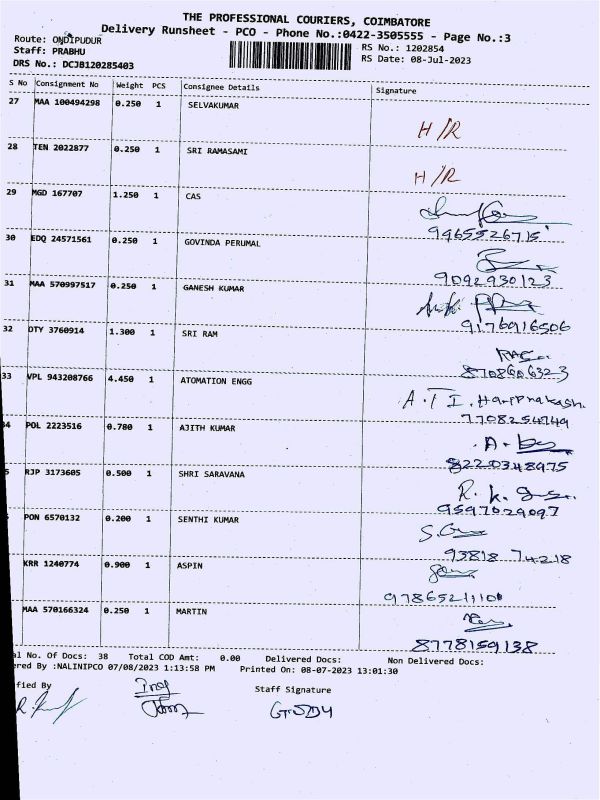 THE PROFESSIONAL COURIERS, COIMBATORE
Delivery Runsheet - PCO - Phone No.:0422-3505555 - Page No.:3
Route: ONDIPUDUR
RS No.: 1202854
Staff: PRABHU
RS Date: 08-Jul-2023
DRS No.: DCJB120285403
S No Consignment No Weight PCS Consignee Details Signature
27 MAA 100494298 0.250 1 SELVAKUMAR
H/R
28 TEN 2022877 0.250 1 SRI RAMASAMI
H/R
29 MGD 167707 1.250 1 CAS
9965526715
30 EDQ 24571561 0.250 1 GOVINDA PERUMAL
9092930123
31 MAA 570997517 0.250 1 GANESH KUMAR
9176916506
32 OTY 3760914 1.300 1 SRI RAM
8708606323
33 VPL 943208766 4.450 1 ATOMATION ENGG
A.T I. Hariprakash.
7708254749
4 POL 2223516 0.780 1 AJITH KUMAR
8220348975
5 RJP 3173605 0.500 1 SHRI SARAVANA
9597029097
PON 6570132 0.200 1 SENTHI KUMAR
93818 74218
KRR 1240774 0.900 1 ASPIN
97865211100
MAA 570166324 0.250 1 MARTIN
8778159138
al No. Of Docs: 38 Total COD Amt: 0.00 Delivered Docs: Non Delivered Docs:
ered By :NALINIPCO 07/08/2023 1:13:58 PM Printed On: 08-07-2023 13:01:30
ified By
Staff Signature